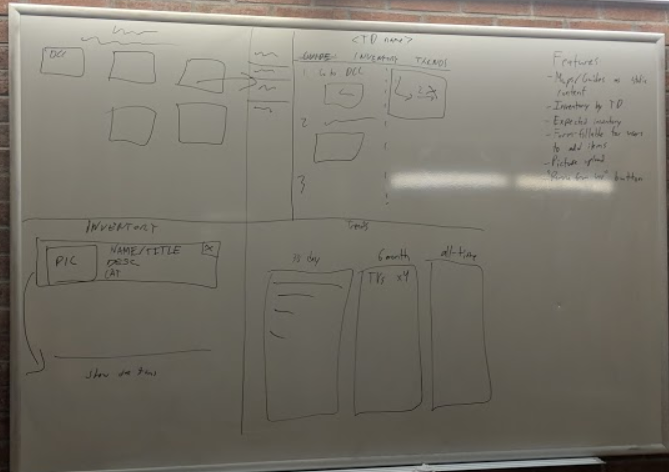 <TD name>
GUIDE INVENTORY TRENDS
1. Go to DCC
2
3
Features:
- Maps/Guides as static
content
- Inventory by TD
- Expected inventory
- Form-fillable for users
to add items
- Picture upload
button
INVENTORY
PIC
NAME/TITLE
DESC
CAT
X
Trends
6 month
all-time
day
TVs x4